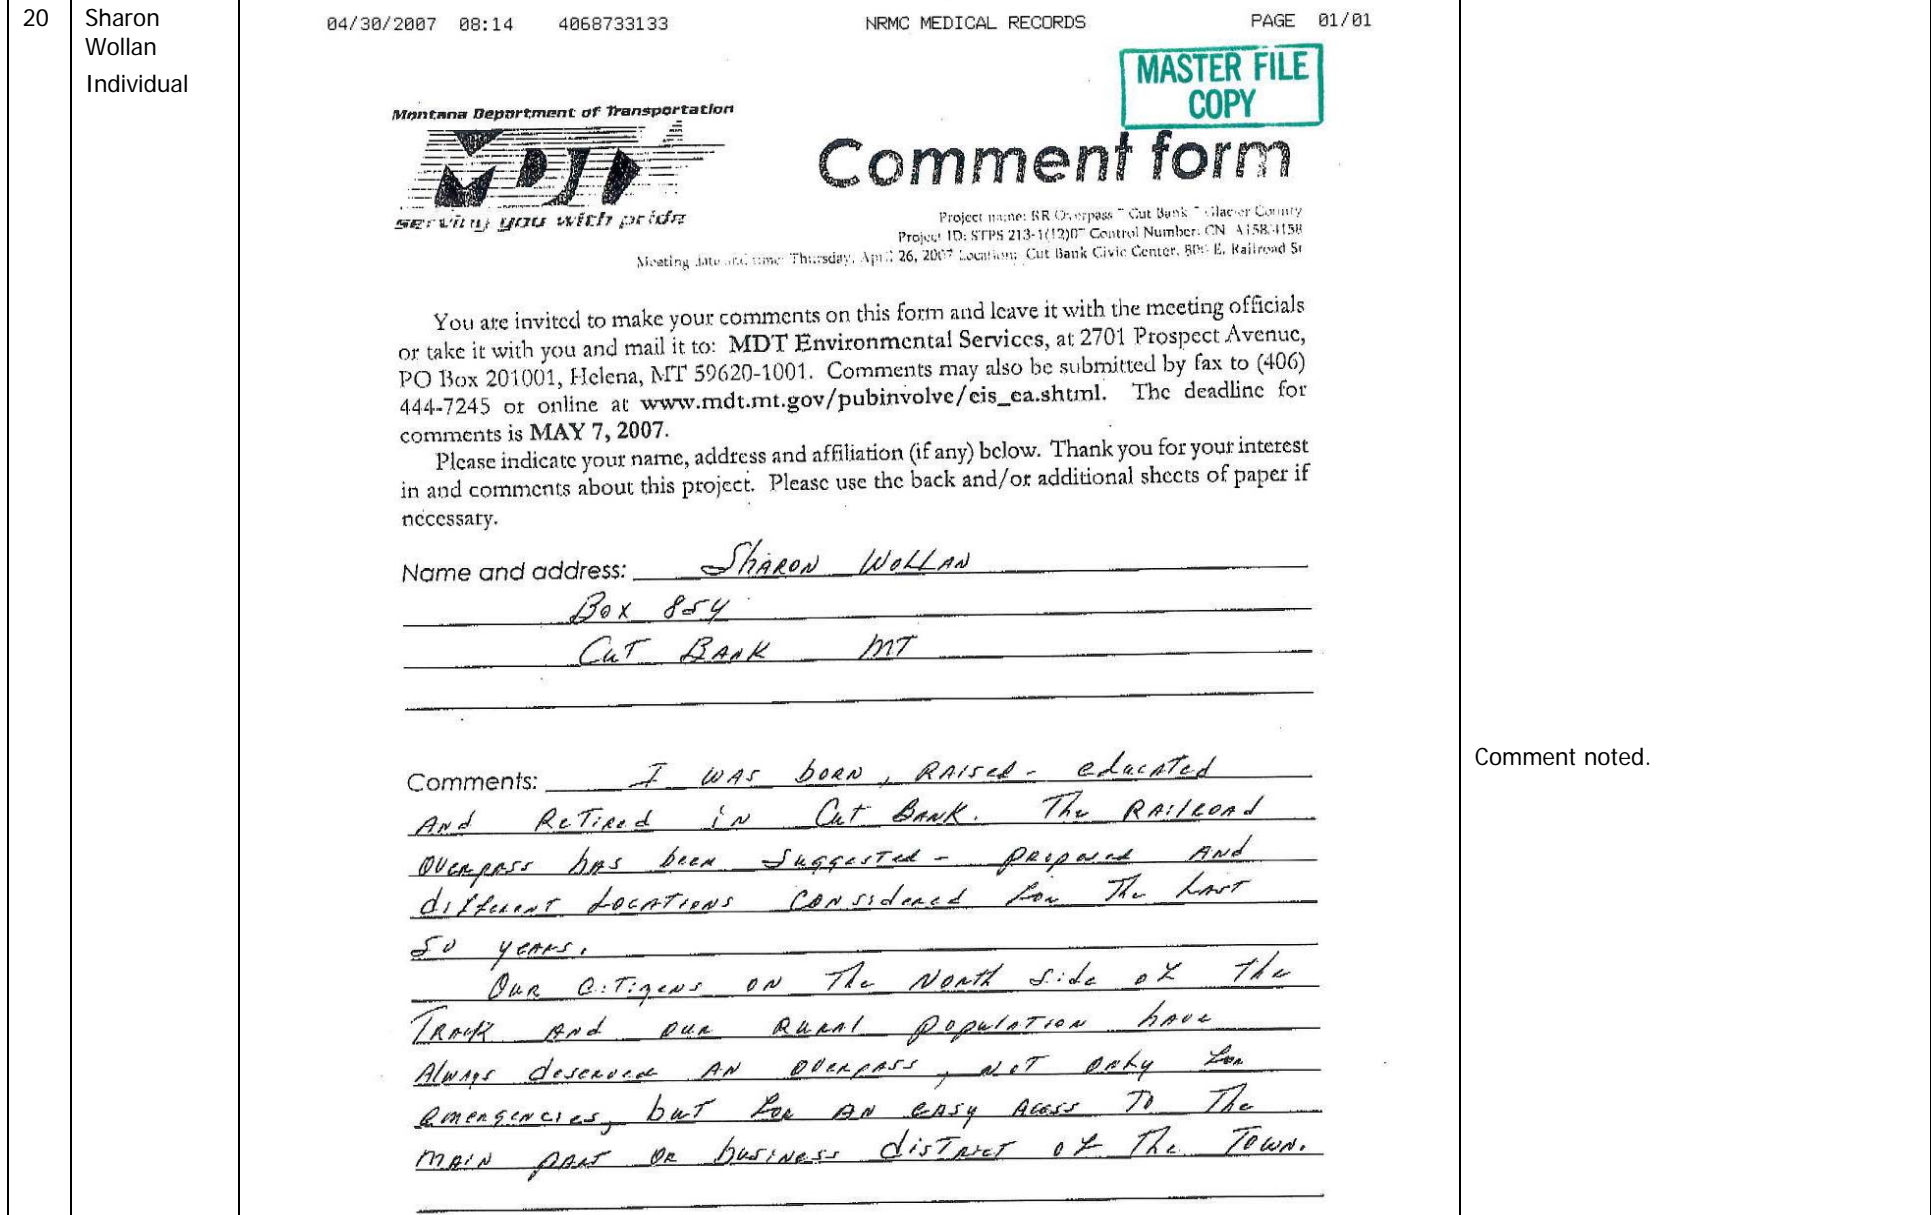 20
Sharon
Wollan
Individual
04/30/2007 08:14 4068733133 NRMC MEDICAL RECORDS PAGE 01/01
MASTER FILE
COPY
Montana Department of Transportation
MDT
serving you with pride
Comment form
Project name: RR Overpass ~ Cut Bank ~ Glacier County
Project ID: STPS 213-1(12)0~ Control Number: CN A158/4158
Meeting date and time: Thursday, April 26, 2007 Location: Cut Bank Civic Center, E. Railroad St
You are invited to make your comments on this form and leave it with the meeting officials
or take it with you and mail it to: MDT Environmental Services, at 2701 Prospect Avenue,
PO Box 201001, Helena, MT 59620-1001. Comments may also be submitted by fax to (406)
444-7245 or online at www.mdt.mt.gov/pubinvolve/eis_ea.shtml. The deadline for
comments is MAY 7, 2007.
Please indicate your name, address and affiliation (if any) below. Thank you for your interest
in and comments about this project. Please use the back and/or additional sheets of paper if
necessary.
Name and address: Sharon Wollan
Box 854
Cut Bank MT
Comments: I was born, raised - educated
And Retired in Cut Bank. The Railroad
overpass has been suggested - proposed and
different locations considered for the last
50 years.
Our citizens on the North side of the
Track and our rural population have
Always deserved an overpass, not only for
emergencies, but for an easy acess to the
main part or business district of the Town.
Comment noted.